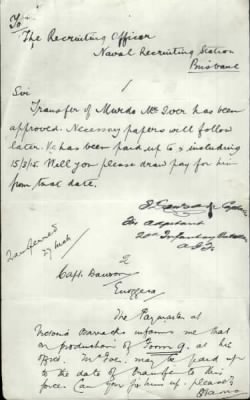 To
The Recruiting Officer
Naval Recruiting Station
Brisbane
Sir
Transfer of Murdo McIver has been
approved. Necessary papers will follow
later. He has been paid up to & including
15/3/15. Will you please draw pay for him
from that date.
Capt
For Adjutant
Infantry Battalion
A.I.F.
Transferred
2
Capt. Dawson
Enoggera
The Paymaster at
Victoria Barracks informs me that
on production of Form 9. at his
office. McIver may be paid up
to the date of transfer to this
force. Can you fix him up. please?